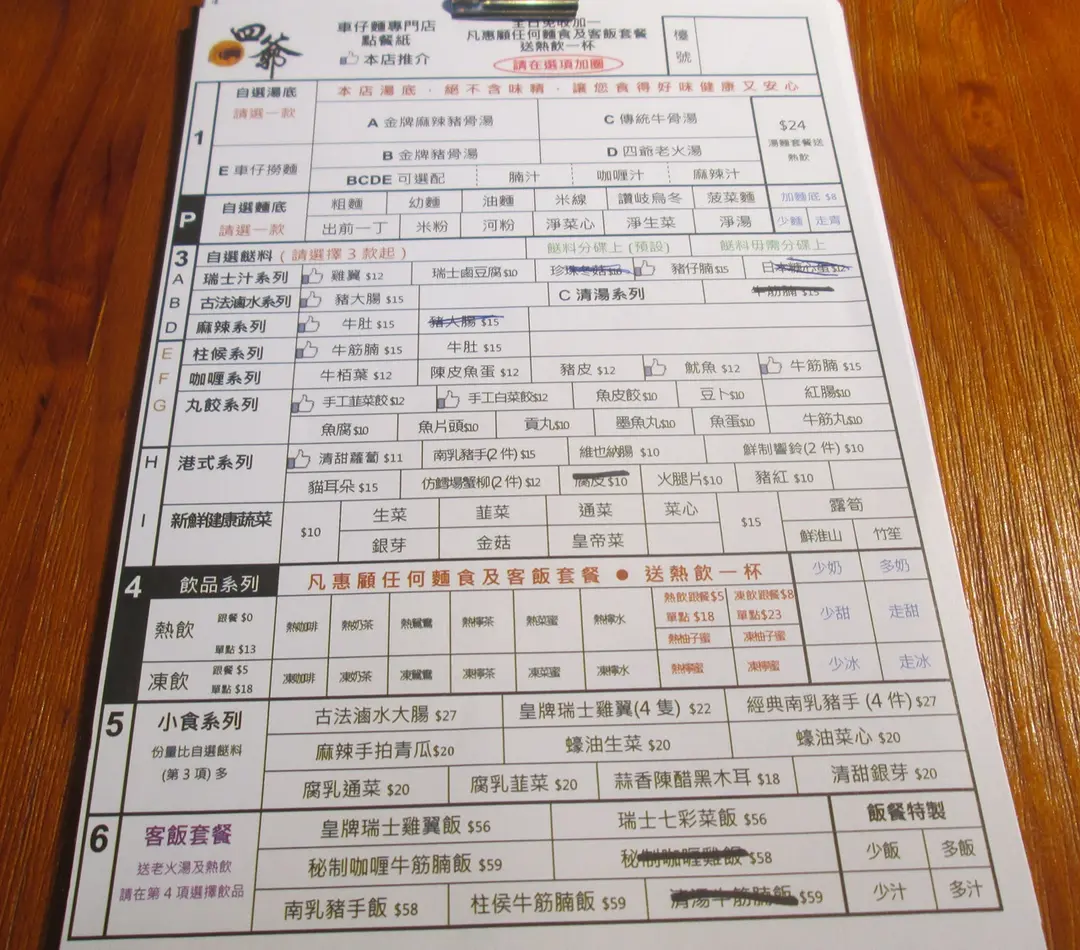 四爺
車仔麵專門店
點餐紙
本店推介
全日免收加一
凡惠顧任何麵食及客飯套餐
送熱飲一杯
請在選項加圈
檯號
1
自選湯底
請選一款
本店湯底．絕不含味精．讓您食得好味健康又安心
A 金牌麻辣豬骨湯
C 傳統牛骨湯
$24
湯麵套餐送
熱飲
B 金牌豬骨湯
D 四爺老火湯
E 車仔撈麵
BCDE 可選配
腩汁
咖喱汁
麻辣汁
P
自選麵底
請選一款
粗麵 幼麵 油麵 米線 讚岐烏冬 菠菜麵 加麵底 $8
出前一丁 米粉 河粉 淨菜心 淨生菜 淨湯 少麵 走青
3 自選餸料 ( 請選擇 3 款起 ) 餸料分碟上 (預設) 餸料毋需分碟上
A 瑞士汁系列 雞翼 $12 瑞士鹵豆腐$10 珍珠冬菇$10 豬仔腩$15 日本糖心蛋$12
B 古法滷水系列 豬大腸 $15 C 清湯系列 牛筋腩 $15
D 麻辣系列 牛肚 $15 豬大腸 $15
E 柱候系列 牛筋腩 $15 牛肚 $15
F 咖喱系列 牛栢葉 $12 陳皮魚蛋 $12 豬皮 $12 魷魚 $12 牛筋腩 $15
G 丸餃系列 手工韮菜餃$12 手工白菜餃$12 魚皮餃$10 豆卜$10 紅腸$10
魚腐$10 魚片頭$10 貢丸$10 墨魚丸$10 魚蛋$10 牛筋丸$10
H 港式系列 清甜蘿蔔 $11 南乳豬手(2 件) $15 維也納腸 $10 鮮制響鈴(2 件) $10
貓耳朵 $15 仿鱈場蟹柳(2 件) $12 腐皮 $10 火腿片$10 豬紅 $10
I 新鮮健康蔬菜 $10 生菜 韮菜 通菜 菜心 $15 露筍
銀芽 金菇 皇帝菜 鮮淮山 竹笙
4 飲品系列 凡惠顧任何麵食及客飯套餐 ● 送熱飲一杯 少奶 多奶
熱飲 跟餐 $0
單點 $13
熱咖啡 熱奶茶 熱鴛鴦 熱檸茶 熱菜蜜 熱檸水
熱飲跟餐$5 凍飲跟餐$8
單點 $18 單點$23
熱柚子蜜 凍柚子蜜
少甜 走甜
凍飲 跟餐 $5
單點 $18
凍咖啡 凍奶茶 凍鴛鴦 凍檸茶 凍菜蜜 凍檸水 熱檸蜜 凍檸蜜 少冰 走冰
5 小食系列
份量比自選餸料
(第 3 項) 多
古法滷水大腸 $27 皇牌瑞士雞翼(4 隻) $22 經典南乳豬手 (4 件) $27
麻辣手拍青瓜$20 蠔油生菜 $20 蠔油菜心 $20
腐乳通菜 $20 腐乳韮菜 $20 蒜香陳醋黑木耳 $18 清甜銀芽 $20
6 客飯套餐
送老火湯及熱飲
請在第 4 項選擇飲品
皇牌瑞士雞翼飯 $56 瑞士七彩菜飯 $56 飯餐特製
秘制咖喱牛筋腩飯 $59 秘制咖喱雞飯 $58 少飯 多飯
南乳豬手飯 $58 柱侯牛筋腩飯 $59 清湯牛筋腩飯 $59 少汁 多汁